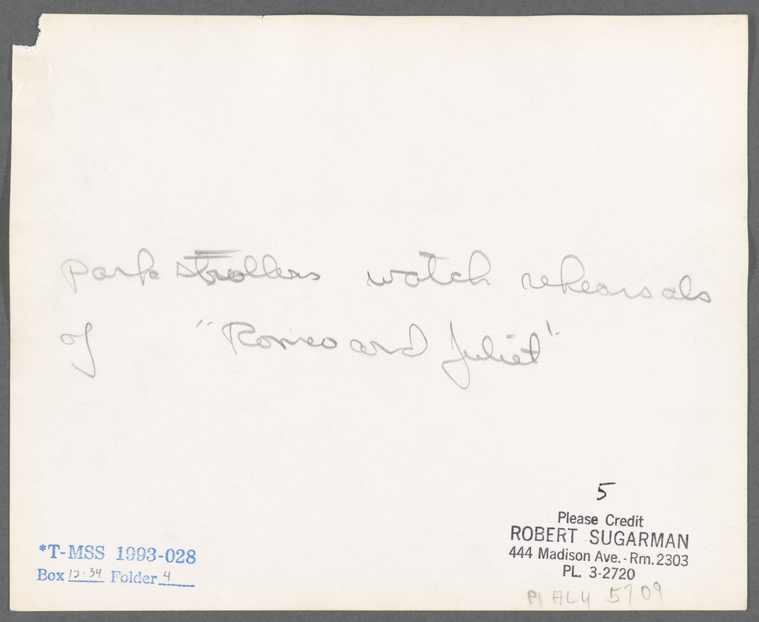 park strollers watch rehearsals
of "Romeo and Juliet"
5
Please Credit
ROBERT SUGARMAN
444 Madison Ave. - Rm. 2303
PL. 3-2720
*T-MSS 1993-028
Box 12-34 Folder 4